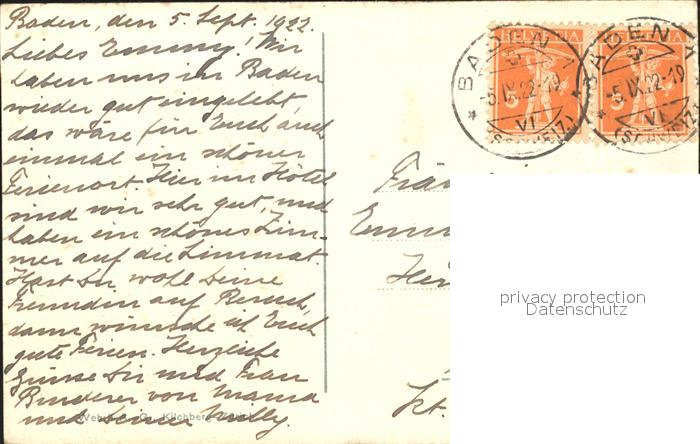 Baden, den 5. Sept. 1922.
Liebes Emmy! Wir
haben uns in Baden
wieder gut eingelebt,
das wäre für Euch auch
einmal ein schöner
Ferienort. Hier im Hotel
sind wir sehr gut, und
haben ein schönes Zim-
mer auf die Limmat.
Hast Du wohl Deine
Freundin auf Besuch,
dann wünsche ich Euch
gute Ferien. Herzliche
Grüsse Dir und Frau
Binderer von Mama
und Deiner Willy.
Kilchberg-Zürich
HELVETIA
HELVETIA
5
5
BADEN 1
-5.IX.22-19
VI
(SCHWEIZ)
BADEN 1
-5.IX.22-19
VI
(SCHWEIZ)
Kt.
privacy protection
Datenschutz